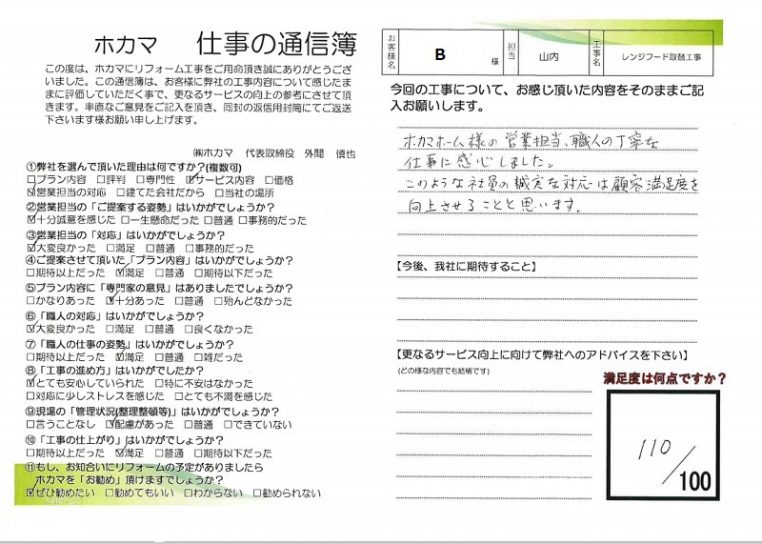 ホカマ 仕事の通信簿
この度は、ホカマにリフォーム工事をご用命頂き誠にありがとうござ
いました。この通信簿は、お客様に弊社の工事内容について感じたま
まに評価していただく事で、更なるサービスの向上の参考にさせて頂
きます。率直なご意見をご記入を頂き、同封の返信用封筒にてご返送
下さいます様お願い申し上げます。
㈱ホカマ 代表取締役 外間 慎也
①弊社を選んで頂いた理由は何ですか?(複数可)
□プラン内容 □評判 □専門性 ☑サービス内容 □価格
☑営業担当の対応 □建てた会社だから □当社の場所
②営業担当の「ご提案する姿勢」はいかがでしょうか?
☑十分誠意を感じた □一生懸命だった □普通 □事務的だった
③営業担当の「対応」はいかがでしょうか?
☑大変良かった □満足 □普通 □事務的だった
④ご提案させて頂いた「プラン内容」はいかがでしょうか?
□期待以上だった ☑満足 □普通 □期待以下だった
⑤プラン内容に「専門家の意見」はありましたでしょうか?
□かなりあった ☑十分あった □普通 □殆んどなかった
⑥「職人の対応」はいかがでしょうか?
☑大変良かった □満足 □普通 □良くなかった
⑦「職人の仕事の姿勢」はいかがでしょうか?
□期待以上だった ☑満足 □普通 □雑だった
⑧「工事の進め方」はいかがでしたか?
☑とても安心していられた □特に不安はなかった
□対応に少しストレスを感じた □とても不満を感じた
⑨現場の「管理状況(整理整頓等)」はいかがでしょうか?
□言うことなし ☑配慮があった □普通 □できていない
⑩「工事の仕上がり」はいかがでしょうか?
□期待以上だった ☑満足 □普通 □期待以下だった
⑪もし、お知合いにリフォームの予定がありましたら
ホカマを「お勧め」頂けますでしょうか?
☑ぜひ勧めたい □勧めてもいい □わからない □勧められない
お客様名 B 様 担当 山内 工事名 レンジフード取替工事
今回の工事について、お感じ頂いた内容をそのままご記
入お願いします。
ホカマホーム様の営業担当、職人の丁寧な
仕事に感心しました。
このような社員の誠実な対応は顧客満足度を
向上させることと思います。
【今後、我社に期待すること】
【更なるサービス向上に向けて弊社へのアドバイスを下さい】
(どの様な内容でも結構です)
満足度は何点ですか?
110/100